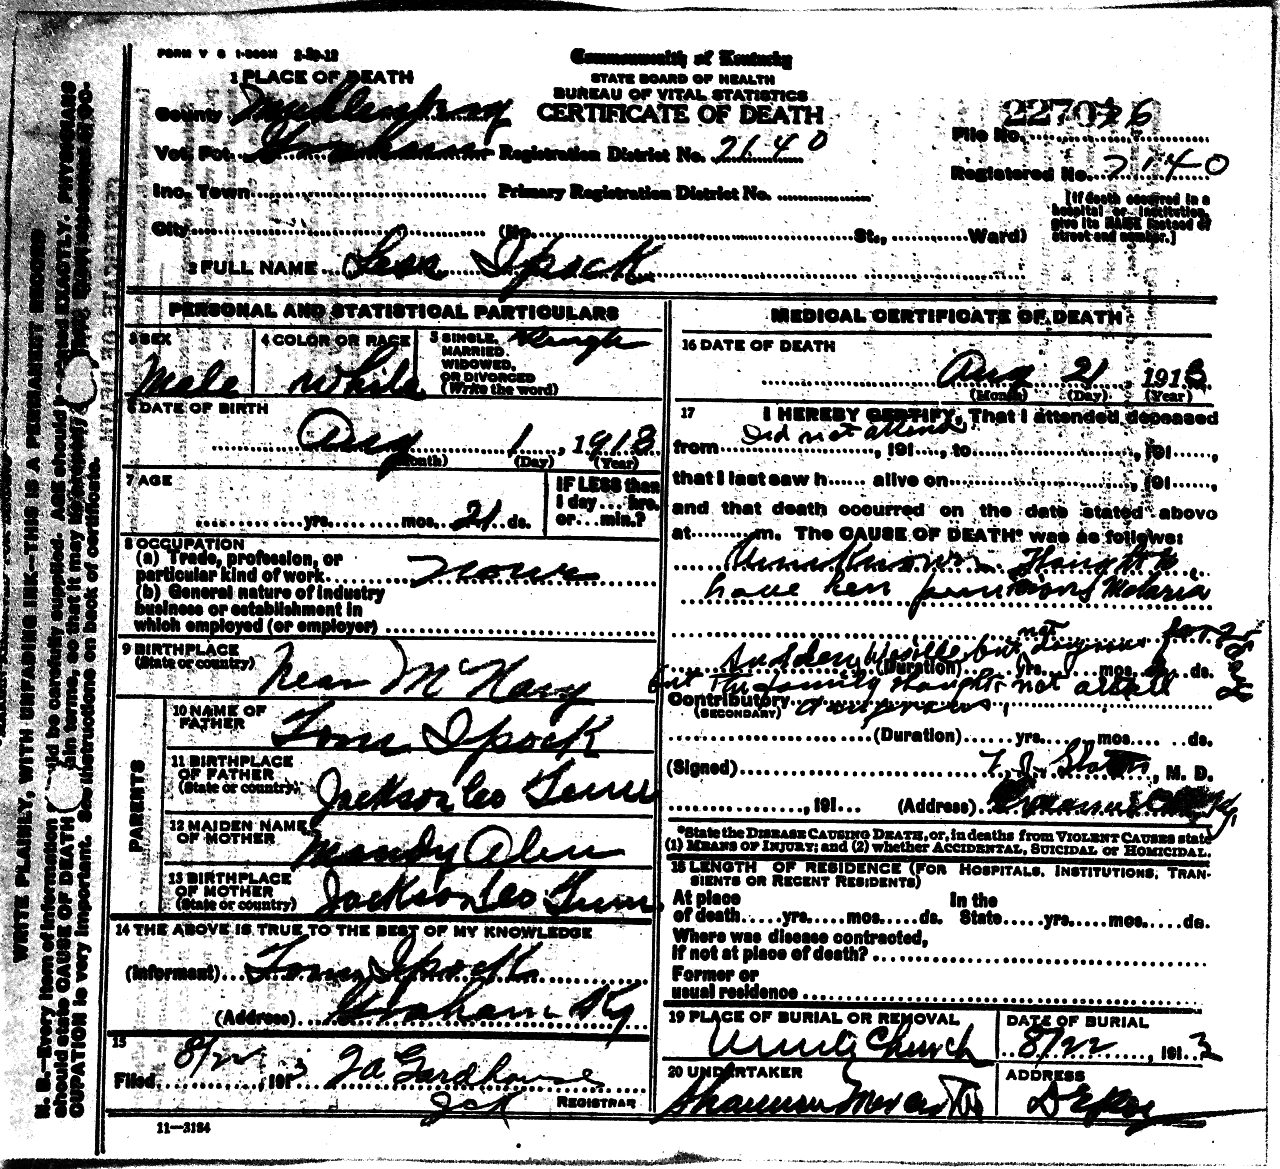 FORM V S 1-500M 2-29-12
Commonwealth of Kentucky
STATE BOARD OF HEALTH
BUREAU OF VITAL STATISTICS
CERTIFICATE OF DEATH
1 PLACE OF DEATH
County Muhlenberg
Vot. Pct. Graham Registration District No. 2140
File No. 22706
Registered No. 2140
Inc. Town Primary Registration District No.
City (No. St., Ward)
[If death occurred in a
hospital or institution,
give its NAME instead of
street and number.]
2 FULL NAME Leon Ipock
PERSONAL AND STATISTICAL PARTICULARS
3 SEX
Male
4 COLOR OR RACE
White
5 SINGLE, Single
MARRIED,
WIDOWED,
OR DIVORCED
(Write the word)
6 DATE OF BIRTH
Aug 1, 1913
(Month) (Day) (Year)
7 AGE
yrs. mos. 21 ds.
IF LESS than
1 day... hrs.
or... min.?
8 OCCUPATION
(a) Trade, profession, or
particular kind of work None
(b) General nature of industry
business or establishment in
which employed (or employer)
9 BIRTHPLACE
(State or country) Near McNary
PARENTS
10 NAME OF
FATHER Tom Ipock
11 BIRTHPLACE
OF FATHER
(State or country) Jackson Co Tenn
12 MAIDEN NAME
OF MOTHER Mandy Alen
13 BIRTHPLACE
OF MOTHER
(State or country) Jackson Co Tenn
14 THE ABOVE IS TRUE TO THE BEST OF MY KNOWLEDGE
(Informant) Tom Ipock
(Address) Graham Ky
15
Filed 8/22, 1913 J A Gardhouse
REGISTRAR
11—3184
MEDICAL CERTIFICATE OF DEATH
16 DATE OF DEATH
Aug 21 1913
(Month) (Day) (Year)
17 I HEREBY CERTIFY, That I attended deceased
from Did not attend, 191..., to, 191...,
that I last saw h... alive on, 191...,
and that death occurred on the date stated above
at m. The CAUSE OF DEATH* was as follows:
Unknown Thought to
have ben Malaria
not for 2 or
but
(Duration) yrs. mos. ds.
but the family thought not
Contributory
(SECONDARY)
(Duration) yrs. mos. ds.
(Signed), M. D.
, 191... (Address) Ky,
*State the DISEASE CAUSING DEATH, or, in deaths from VIOLENT CAUSES state
(1) MEANS OF INJURY; and (2) whether ACCIDENTAL, SUICIDAL or HOMICIDAL.
18 LENGTH OF RESIDENCE (FOR HOSPITALS, INSTITUTIONS, TRAN-
SIENTS OR RECENT RESIDENTS)
At place In the
of death yrs. mos. ds. State yrs. mos. ds.
Where was disease contracted,
if not at place of death?
Former or
usual residence
19 PLACE OF BURIAL OR REMOVAL
Church
DATE OF BURIAL
8/22, 1913
20 UNDERTAKER
Shannon
ADDRESS
WRITE PLAINLY, WITH UNFADING INK—THIS IS A PERMANENT RECORD
N. B.—Every item of information be carefully supplied. AGE should be stated EXACTLY. PHYSICIANS
should state CAUSE OF DEATH in plain terms, so that it may be
OCCUPATION is very important. See instructions on back of certificate.